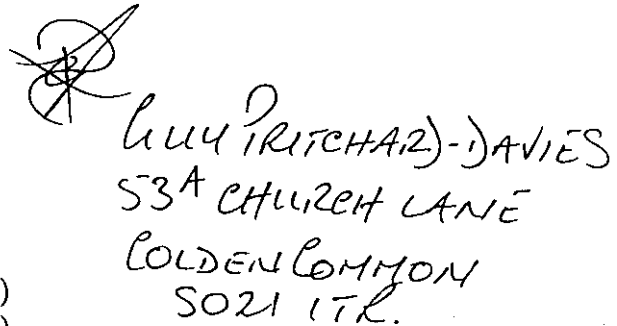 GUY PRITCHARD-DAVIES
53A CHURCH LANE
COLDEN COMMON
SO21 1TR.
)
)